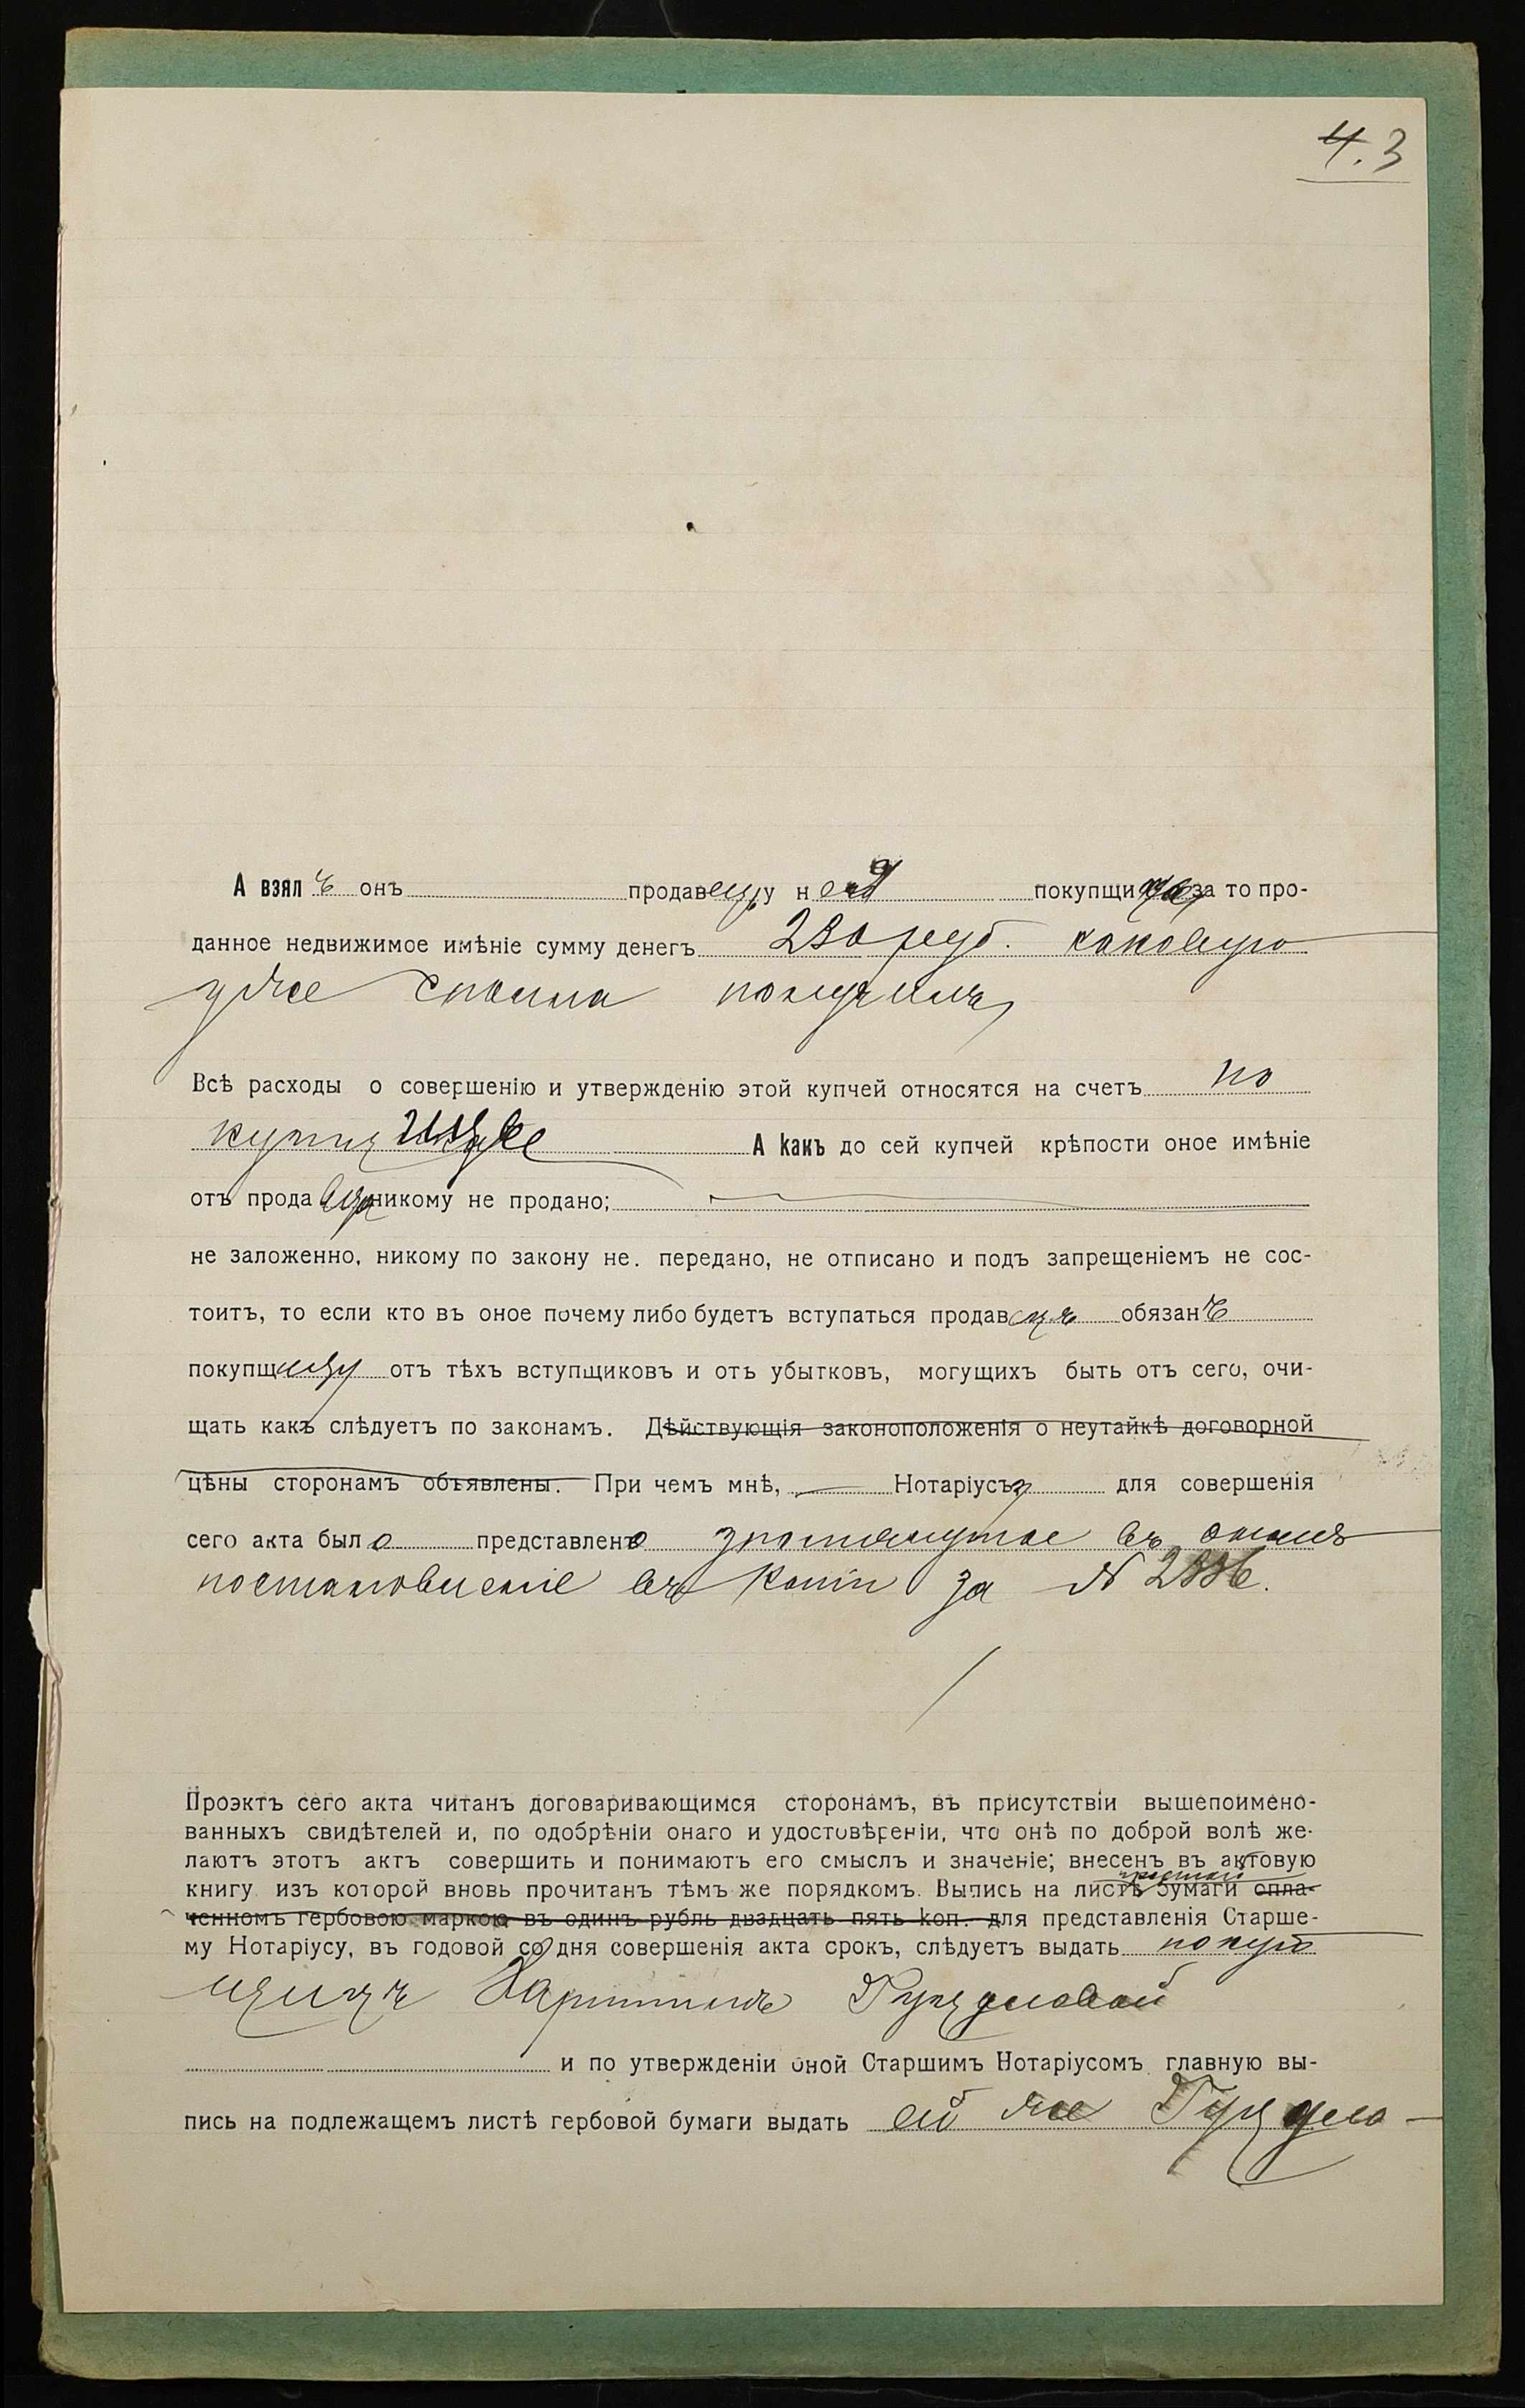 4. 3
А взялъ онъ продавецъ у ней покупщицы за то про-
данное недвижимое имѣніе сумму денегъ 280 руб. каковую
уже сполна получилъ,
Всѣ расходы о совершенію и утвержденію этой купчей относятся на счетъ по
купщицы А какъ до сей купчей крѣпости оное имѣніе
отъ продавца никому не продано;
не заложенно, никому по закону не. передано, не отписано и подъ запрещеніемъ не сос-
тоитъ, то если кто въ оное почему либо будетъ вступаться продавецъ обязанъ
покупщицу отъ тѣхъ вступщиковъ и отъ убытковъ, могущихъ быть отъ сего, очи-
щать какъ слѣдуетъ по законамъ. Дѣйствующія законоположенія о неутайкѣ договорной
цѣны сторонамъ объявлены. При чемъ мнѣ, Нотаріусъ для совершенія
сего акта было представлено упомянутое въ ономъ
постановленіе въ копіи за №
Проэктъ сего акта читанъ договаривающимся сторонамъ, въ присутствіи вышепоимено-
ванныхъ свидѣтелей и, по одобрѣніи онаго и удостовѣреніи, что онѣ по доброй волѣ же-
лаютъ этотъ актъ совершить и понимаютъ его смыслъ и значеніе; внесенъ въ актовую
простой
книгу изъ которой вновь прочитанъ тѣмъ же порядкомъ. Выпись на листѣ бумаги опла-
ченномъ гербовою маркою въ одинъ рубль двадцать пять коп. для представленія Старше-
му Нотаріусу, въ годовой со дня совершенія акта срокъ, слѣдуетъ выдать покуп
щицѣ
и по утвержденіи оной Старшимъ Нотаріусомъ главную вы-
пись на подлежащемъ листѣ гербовой бумаги выдать ей же